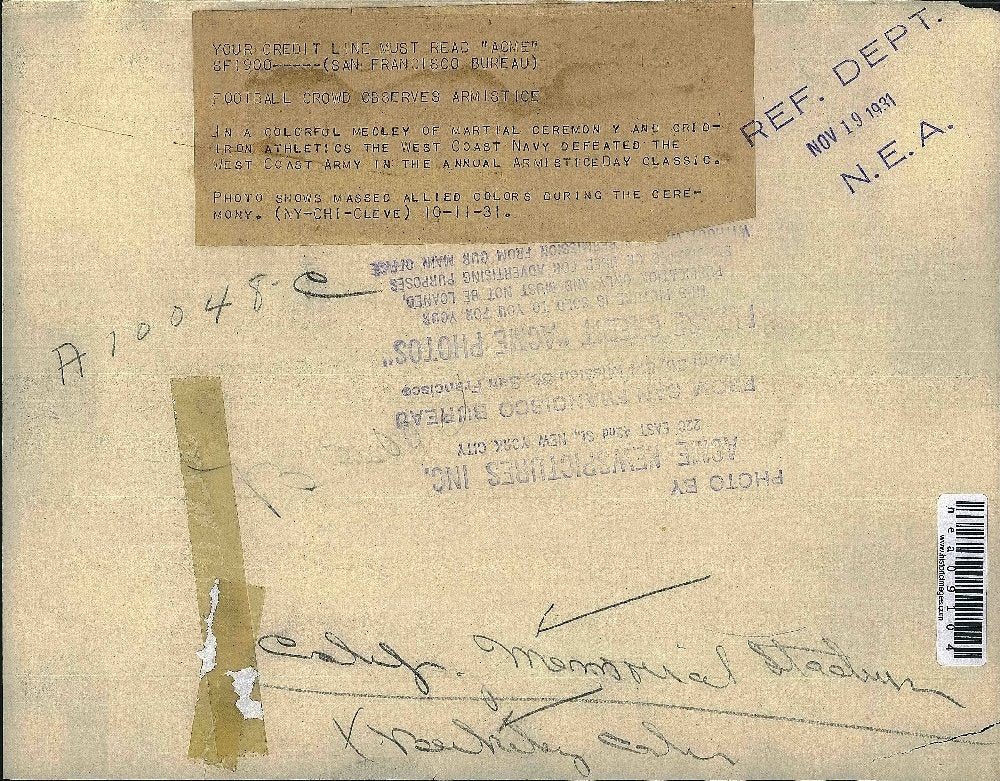 YOUR CREDIT LINE MUST READ "ACME"
SF1900-----(SAN FRANCISCO BUREAU)
FOOTBALL CROWD OBSERVES ARMISTICE
IN A COLORFUL MEDLEY OF MARTIAL CEREMON Y AND GRID-
IRON ATHLETICS THE WEST COAST NAVY DEFEATED THE
WEST COAST ARMY IN THE ANNUAL ARMISTICEDAY CLASSIC.
PHOTO SHOWS MASSED ALLIED COLORS DURING THE CERE-
MONY. (NY-CHI-CLEVE) 10-11-31.
REF. DEPT.
NOV 19 1931
N. E. A.
A10048-C
PHOTO BY
ACME NEWSPICTURES INC.
220 EAST 42nd St., NEW YORK CITY
FROM SAN FRANCISCO BUREAU
Mission St., San Francisco
"ACME PHOTOS"
IS SOLD TO YOU FOR YOUR
ONLY AND MUST NOT BE LOANED,
OR USED FOR ADVERTISING PURPOSES
PERMISSION FROM OUR MAIN OFFICE
nea09104
www.historicimages.com
Calif. Memorial Stadium
X Berkeley Calif